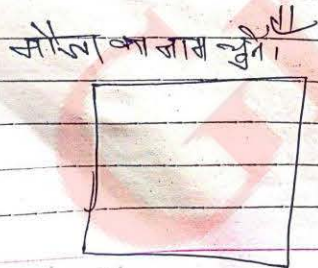 मौजा का नाम चुनें।